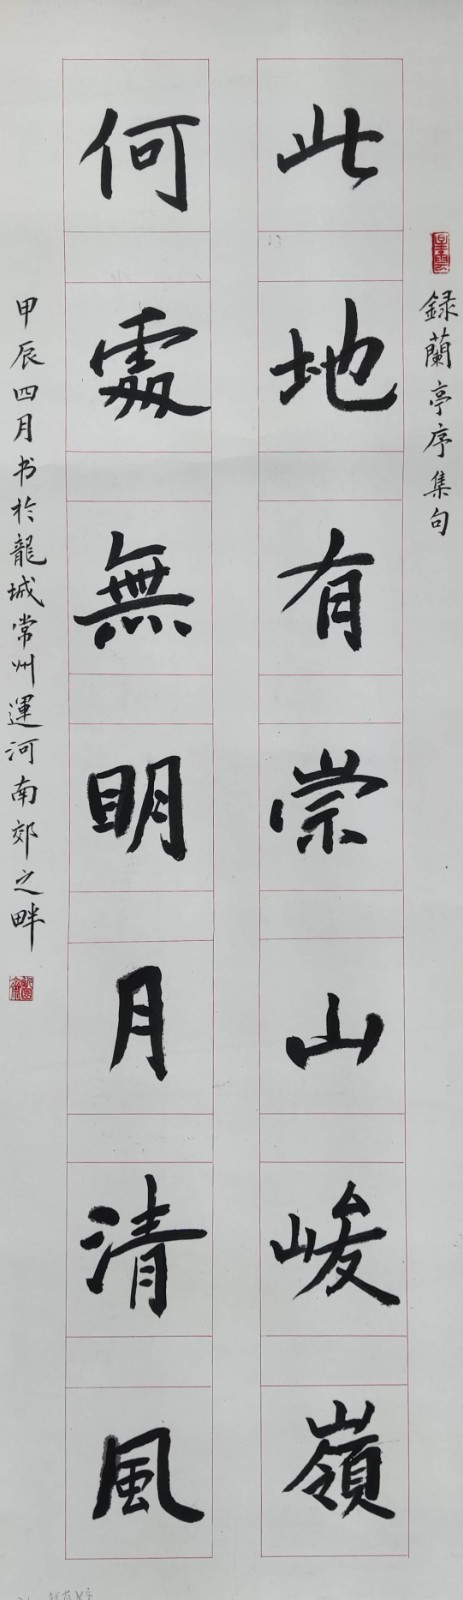 録蘭亭序集句
此地有崇山峻嶺
何處無明月清風
甲辰四月书於龍城常州運河南郊之畔